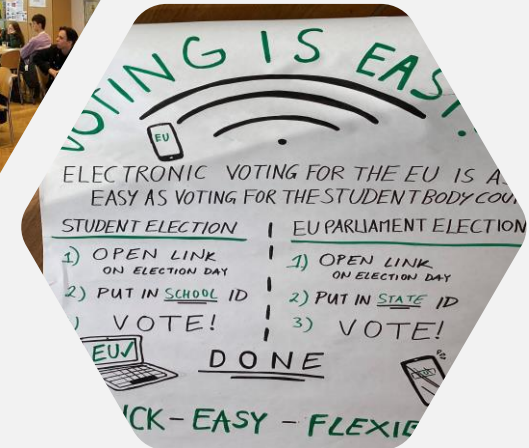 VOTING IS EASY!
EU
ELECTRONIC VOTING FOR THE EU IS
EASY AS VOTING FOR THE STUDENT BODY
STUDENT ELECTION
1) OPEN LINK
ON ELECTION DAY
2) PUT IN SCHOOL ID
) VOTE!
EU✓
EU PARLIAMENT ELECTION
1) OPEN LINK
ON ELECTION DAY
2) PUT IN STATE ID
3) VOTE!
DONE
EASY - FLEXIB